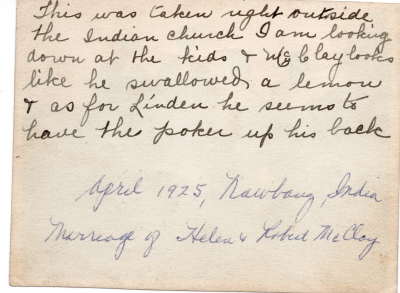 This was taken right outside
the Indian church I am looking
down at the kids & McClay looks
like he swallowed a lemon
& as for Linden he seems to
have the poker up his back
April 1925, Nawbang, India
Marriage of Helen & Robert McClay